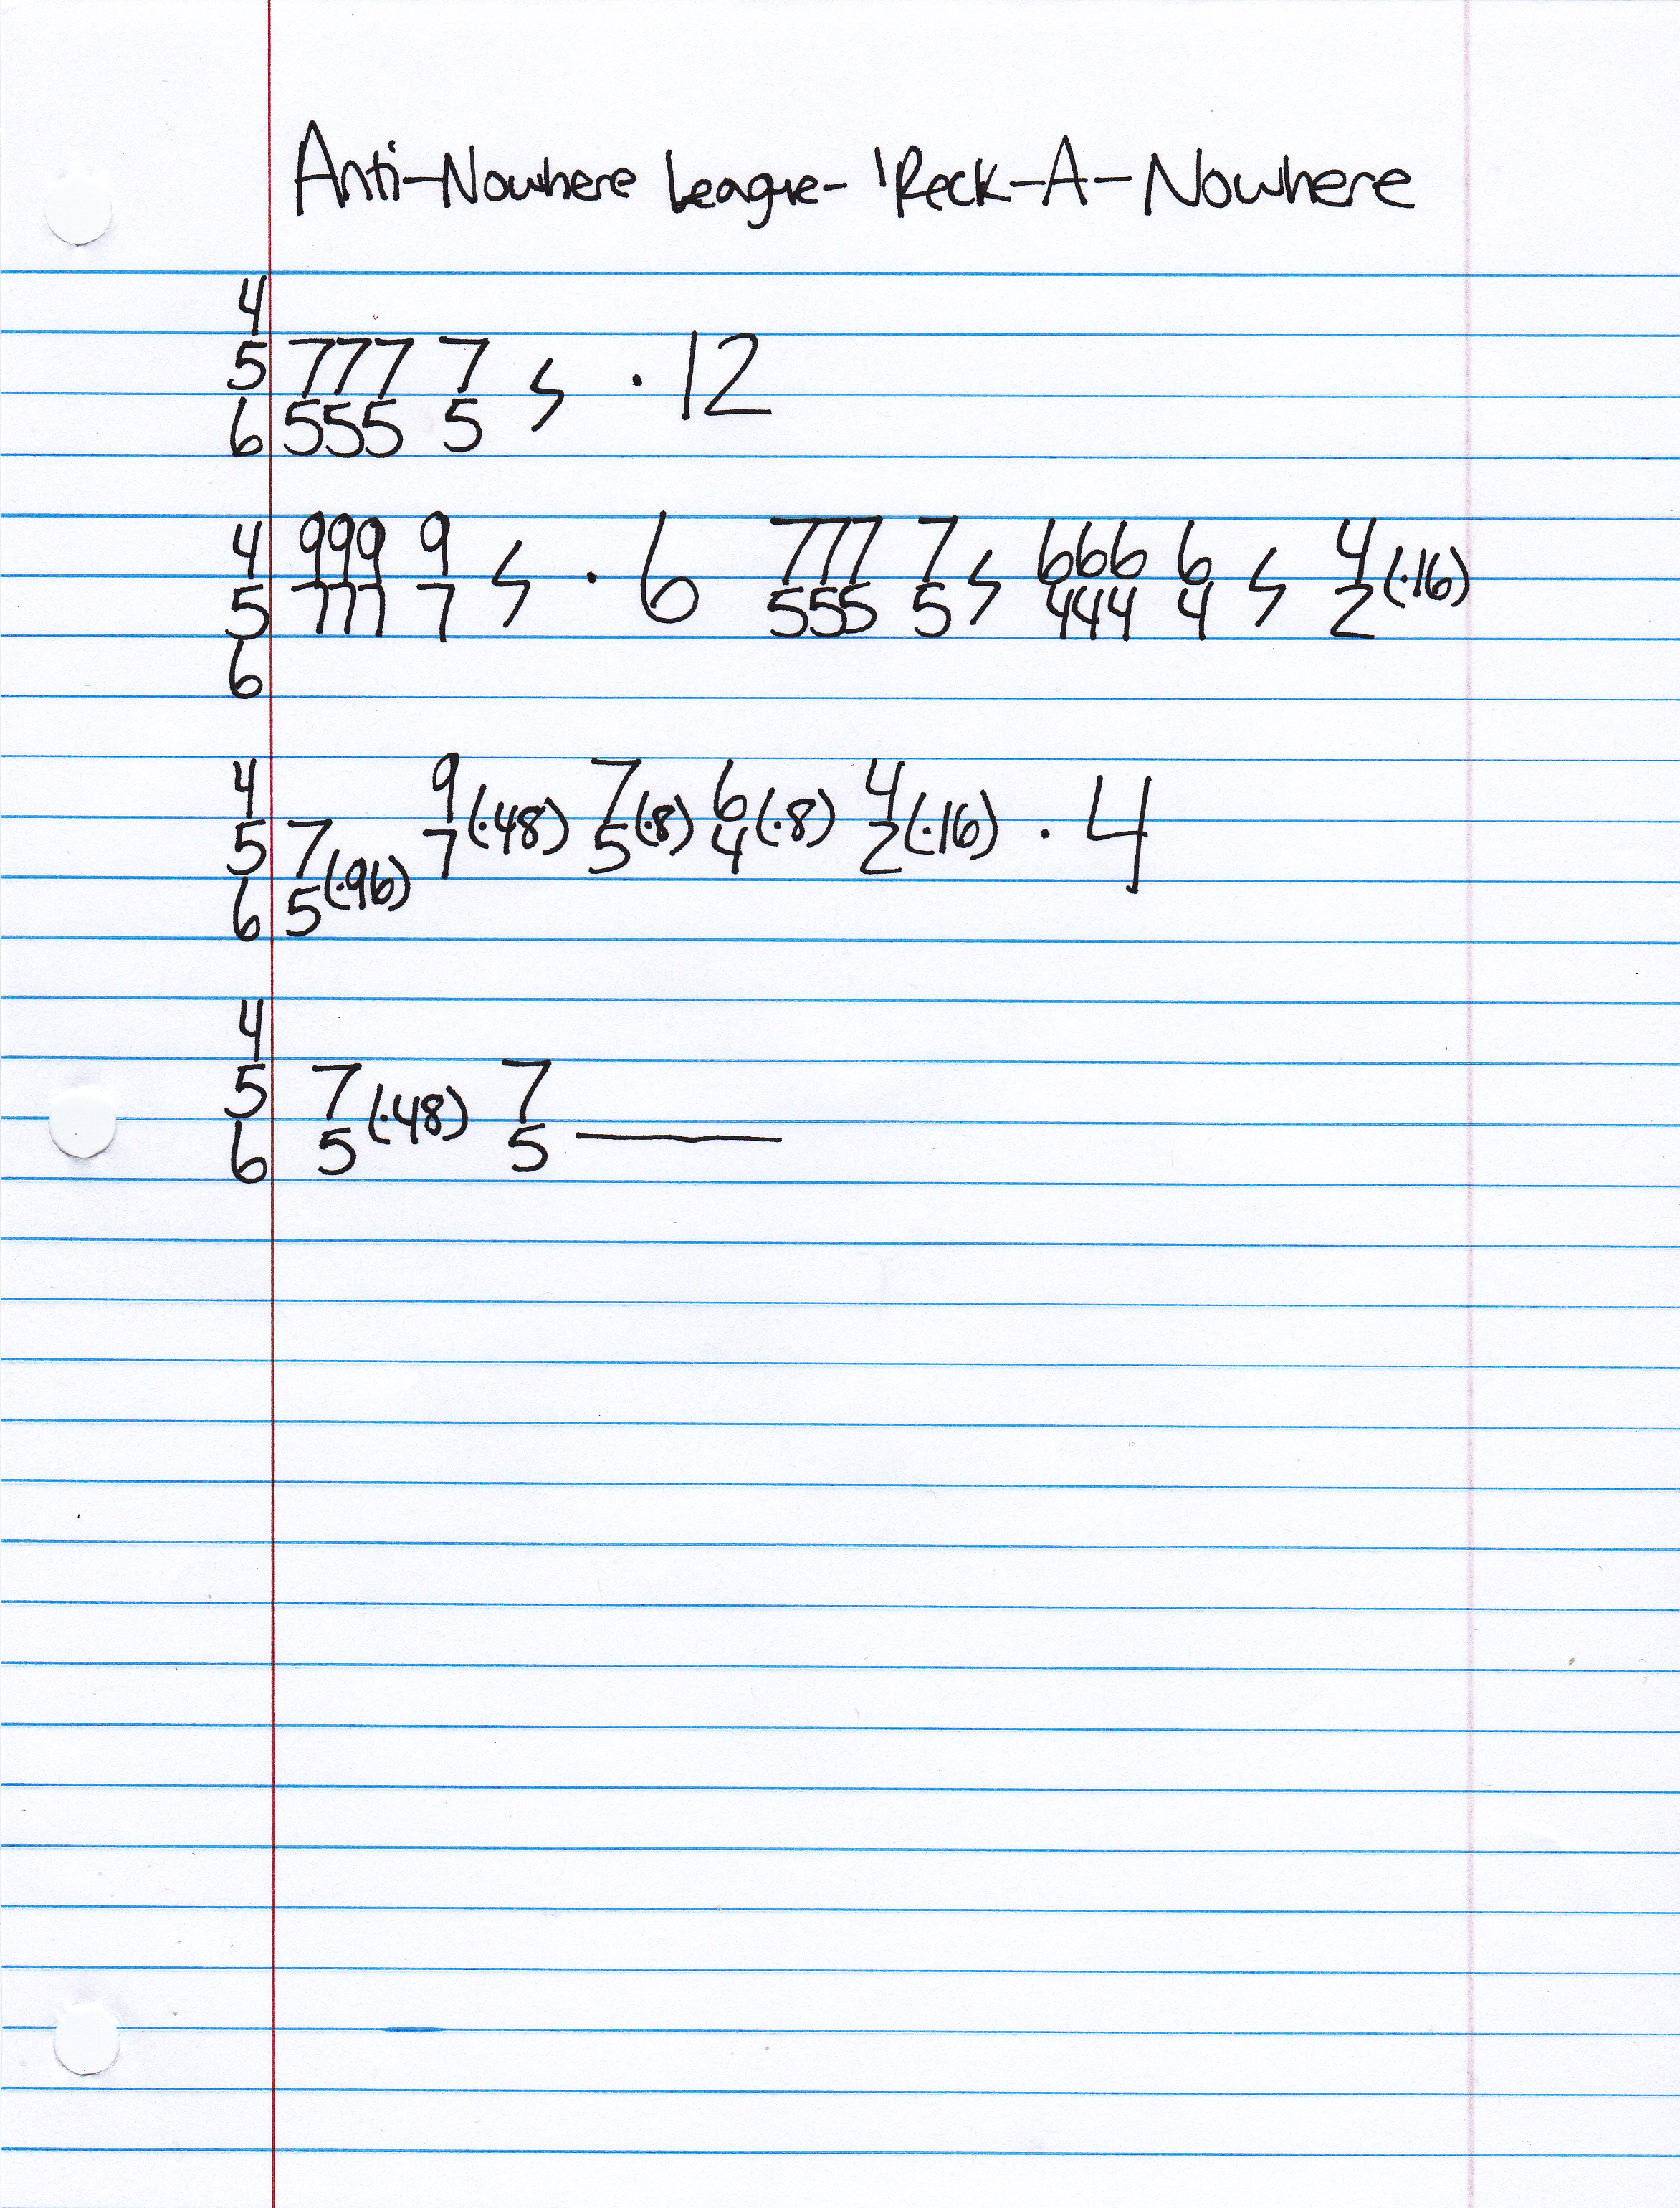 Anti-Nowhere League- 'Reck-A-Nowhere
4
5 777 7 ϟ · 12
6 555 5
4 999 9 ϟ · 6 777 7 ϟ 666 6 ϟ 4 (·16)
5 777 7 555 5 444 4 2
6
4 9 (·48) 7 (·8) 6 (·8) 4 (·16) · 4
5 7 (·96) 7 5 4 2
6 5
4
5 7 (·48) 7
6 5 5 ———